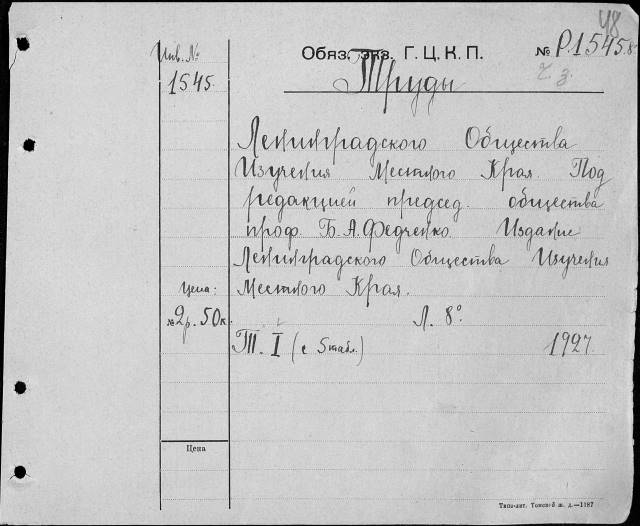 48
Инв. №
1545.
Обяз. экз. Г. Ц. К. П.
№ Р.1545.8°
Ч з.
Труды
Ленинградского Общества
Изучения Местного Края. Под
редакцией председ. общества
проф. Б. А. Федченко. Издание
Ленинградского Общества Изучения
Цена: Местного Края.
№ 2р. 50к. Л. 8°.
Т. I (с 5 табл.) 1927.
Цена
Типо-лит. Томской ж. д.—1187